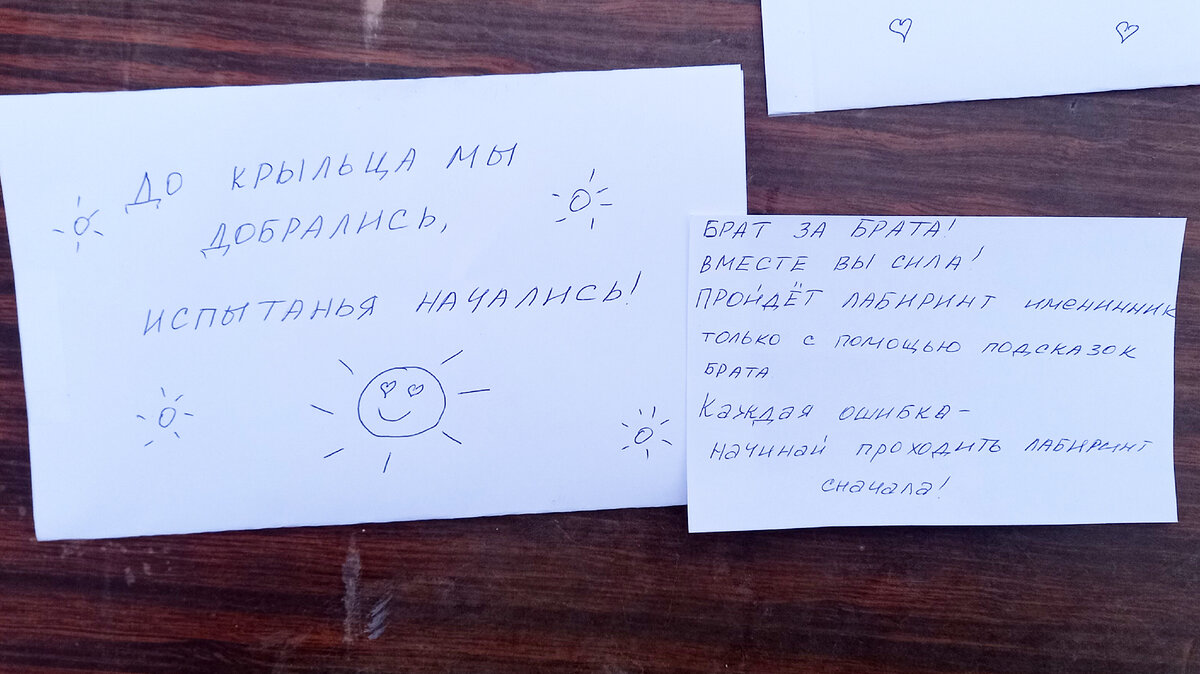 ДО КРЫЛЬЦА МЫ
ДОБРАЛИСЬ,
ИСПЫТАНЬЯ НАЧАЛИСЬ!
БРАТ ЗА БРАТА!
ВМЕСТЕ ВЫ СИЛА!
ПРОЙДЁТ ЛАБИРИНТ ИМЕНИННИК
ТОЛЬКО С ПОМОЩЬЮ ПОДСКАЗОК
БРАТА
КАЖДАЯ ОШИБКА –
НАЧИНАЙ ПРОХОДИТЬ ЛАБИРИНТ
СНАЧАЛА!